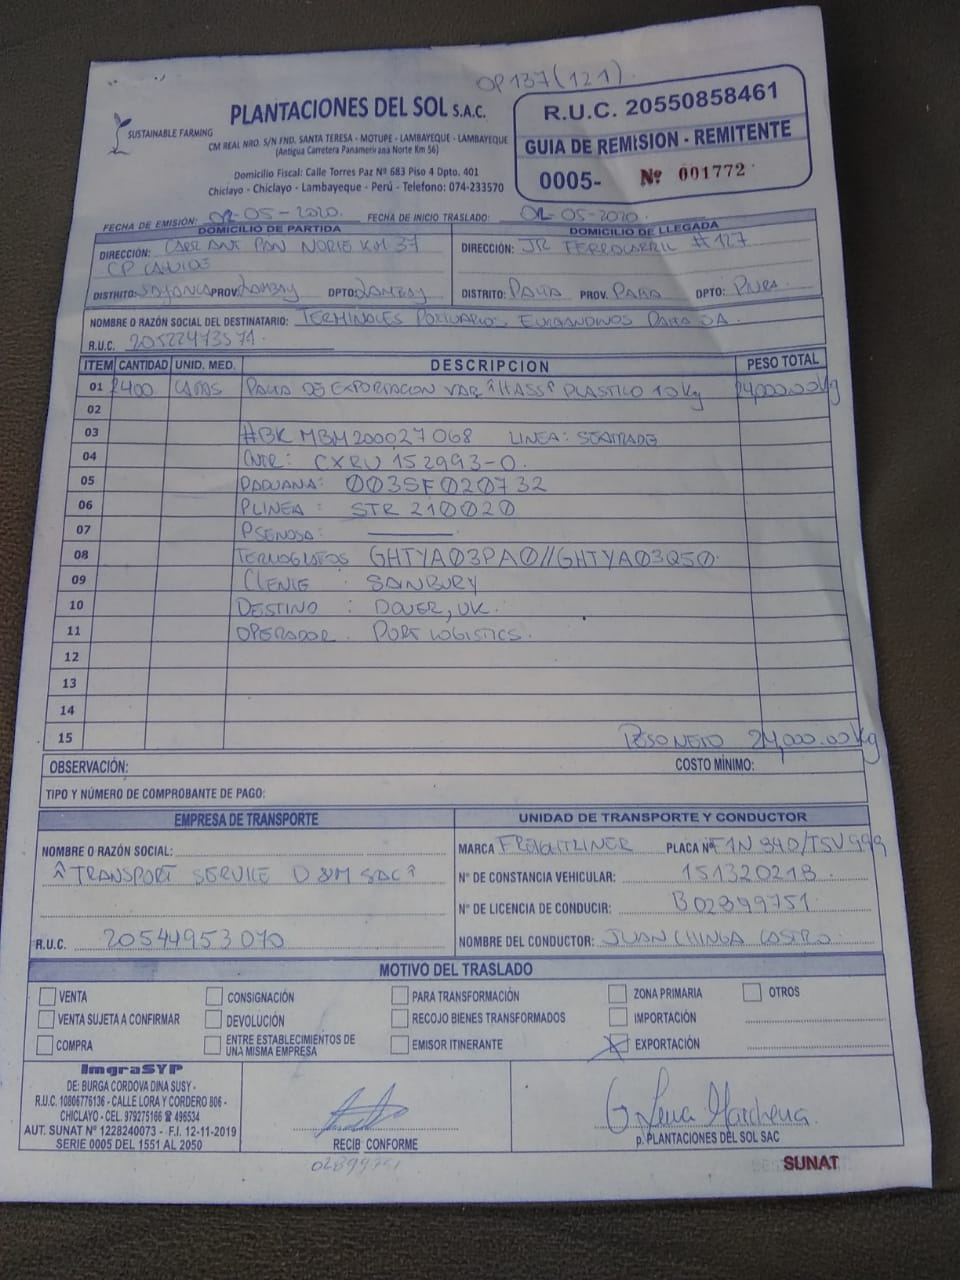 OP137(121)
PLANTACIONES DEL SOL S.A.C.
SUSTAINABLE FARMING
CM REAL NRO. S/N FND. SANTA TERESA - MOTUPE - LAMBAYEQUE - LAMBAYEQUE
(Antigua Carretera Panamerirana Norte Km 56)
Domicilio Fiscal: Calle Torres Paz Nº 683 Piso 4 Dpto. 401
Chiclayo - Chiclayo - Lambayeque - Perú - Telefono: 074-233570
R.U.C. 20550858461
GUIA DE REMISION - REMITENTE
0005- Nº 001772
FECHA DE EMISIÓN: 02-05-2020. FECHA DE INICIO TRASLADO: 02-05-2020.
DOMICILIO DE PARTIDA
DIRECCIÓN: CARR ANT PAN NORTE KM 37
CP CAVIDE
DISTRITO: PROV. LAMBAY DPTO: LAMBAY
DOMICILIO DE LLEGADA
DIRECCIÓN: JR FERROCARRIL #127
DISTRITO: PAITA PROV. PAITA DPTO: PIURA.
NOMBRE O RAZÓN SOCIAL DEL DESTINATARIO: TERMINALES PORTUARIOS EUROANDINOS PAITA SA.
R.U.C. 20522473571.
ITEM CANTIDAD UNID. MED. DESCRIPCION PESO TOTAL
01 2400 CAJAS PALTA DE EXPORTACION VAR "HASS" PLASTICO 10 Kg 24,000.00 Kg
02
03 #BK MBM200027068 LINEA: SEATRADE
04 CNTR: CXRU 152993-0.
05 PADUANA: 003SF020732
06 PLINEA : STR 210020
07 PSENASA:
08 TERMOGRAFOS GHTYA03PA0//GHTYA03Q50.
09 CLIENTE : SAINBURY
10 DESTINO : DOVER, UK.
11 OPERADOR. PORT LOGISTICS.
12
13
14
15 PESO NETO 24,000.00 Kg
OBSERVACIÓN: COSTO MÍNIMO:
TIPO Y NÚMERO DE COMPROBANTE DE PAGO:
EMPRESA DE TRANSPORTE
NOMBRE O RAZÓN SOCIAL:
"TRANSPORT SERVICE D&M SAC"
R.U.C. 20544953070
UNIDAD DE TRANSPORTE Y CONDUCTOR
MARCA FREIGHTLINER PLACA Nº F1N 840/TSV 999
Nº DE CONSTANCIA VEHICULAR: 151320218.
Nº DE LICENCIA DE CONDUCIR: B02899751
NOMBRE DEL CONDUCTOR: JUAN CHINGA CASTRO.
MOTIVO DEL TRASLADO
VENTA CONSIGNACIÓN PARA TRANSFORMACIÓN ZONA PRIMARIA OTROS
VENTA SUJETA A CONFIRMAR DEVOLUCIÓN RECOJO BIENES TRANSFORMADOS IMPORTACIÓN
COMPRA ENTRE ESTABLECIMIENTOS DE UNA MISMA EMPRESA EMISOR ITINERANTE EXPORTACIÓN
ImgraSYP
DE: BURGA CORDOVA DINA SUSY -
R.U.C. 10806776136 - CALLE LORA Y CORDERO 806 -
CHICLAYO - CEL. 979275166 ☎ 496534
AUT. SUNAT Nº 1228240073 - F.I. 12-11-2019
SERIE 0005 DEL 1551 AL 2050
RECIBI CONFORME
02899751
p. PLANTACIONES DEL SOL SAC
SUNAT